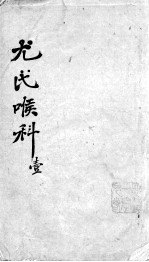 尤氏喉科
壹